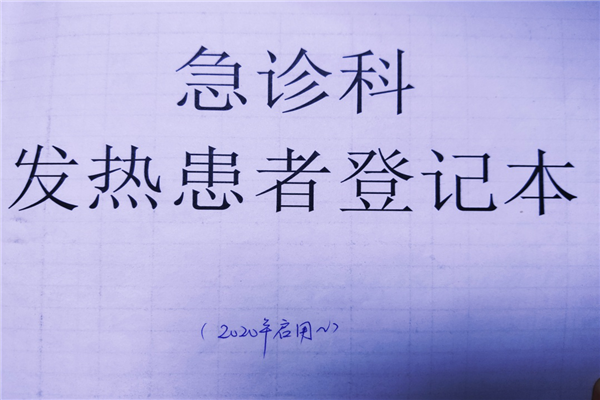 急诊科
发热患者登记本
（2020年启用~）